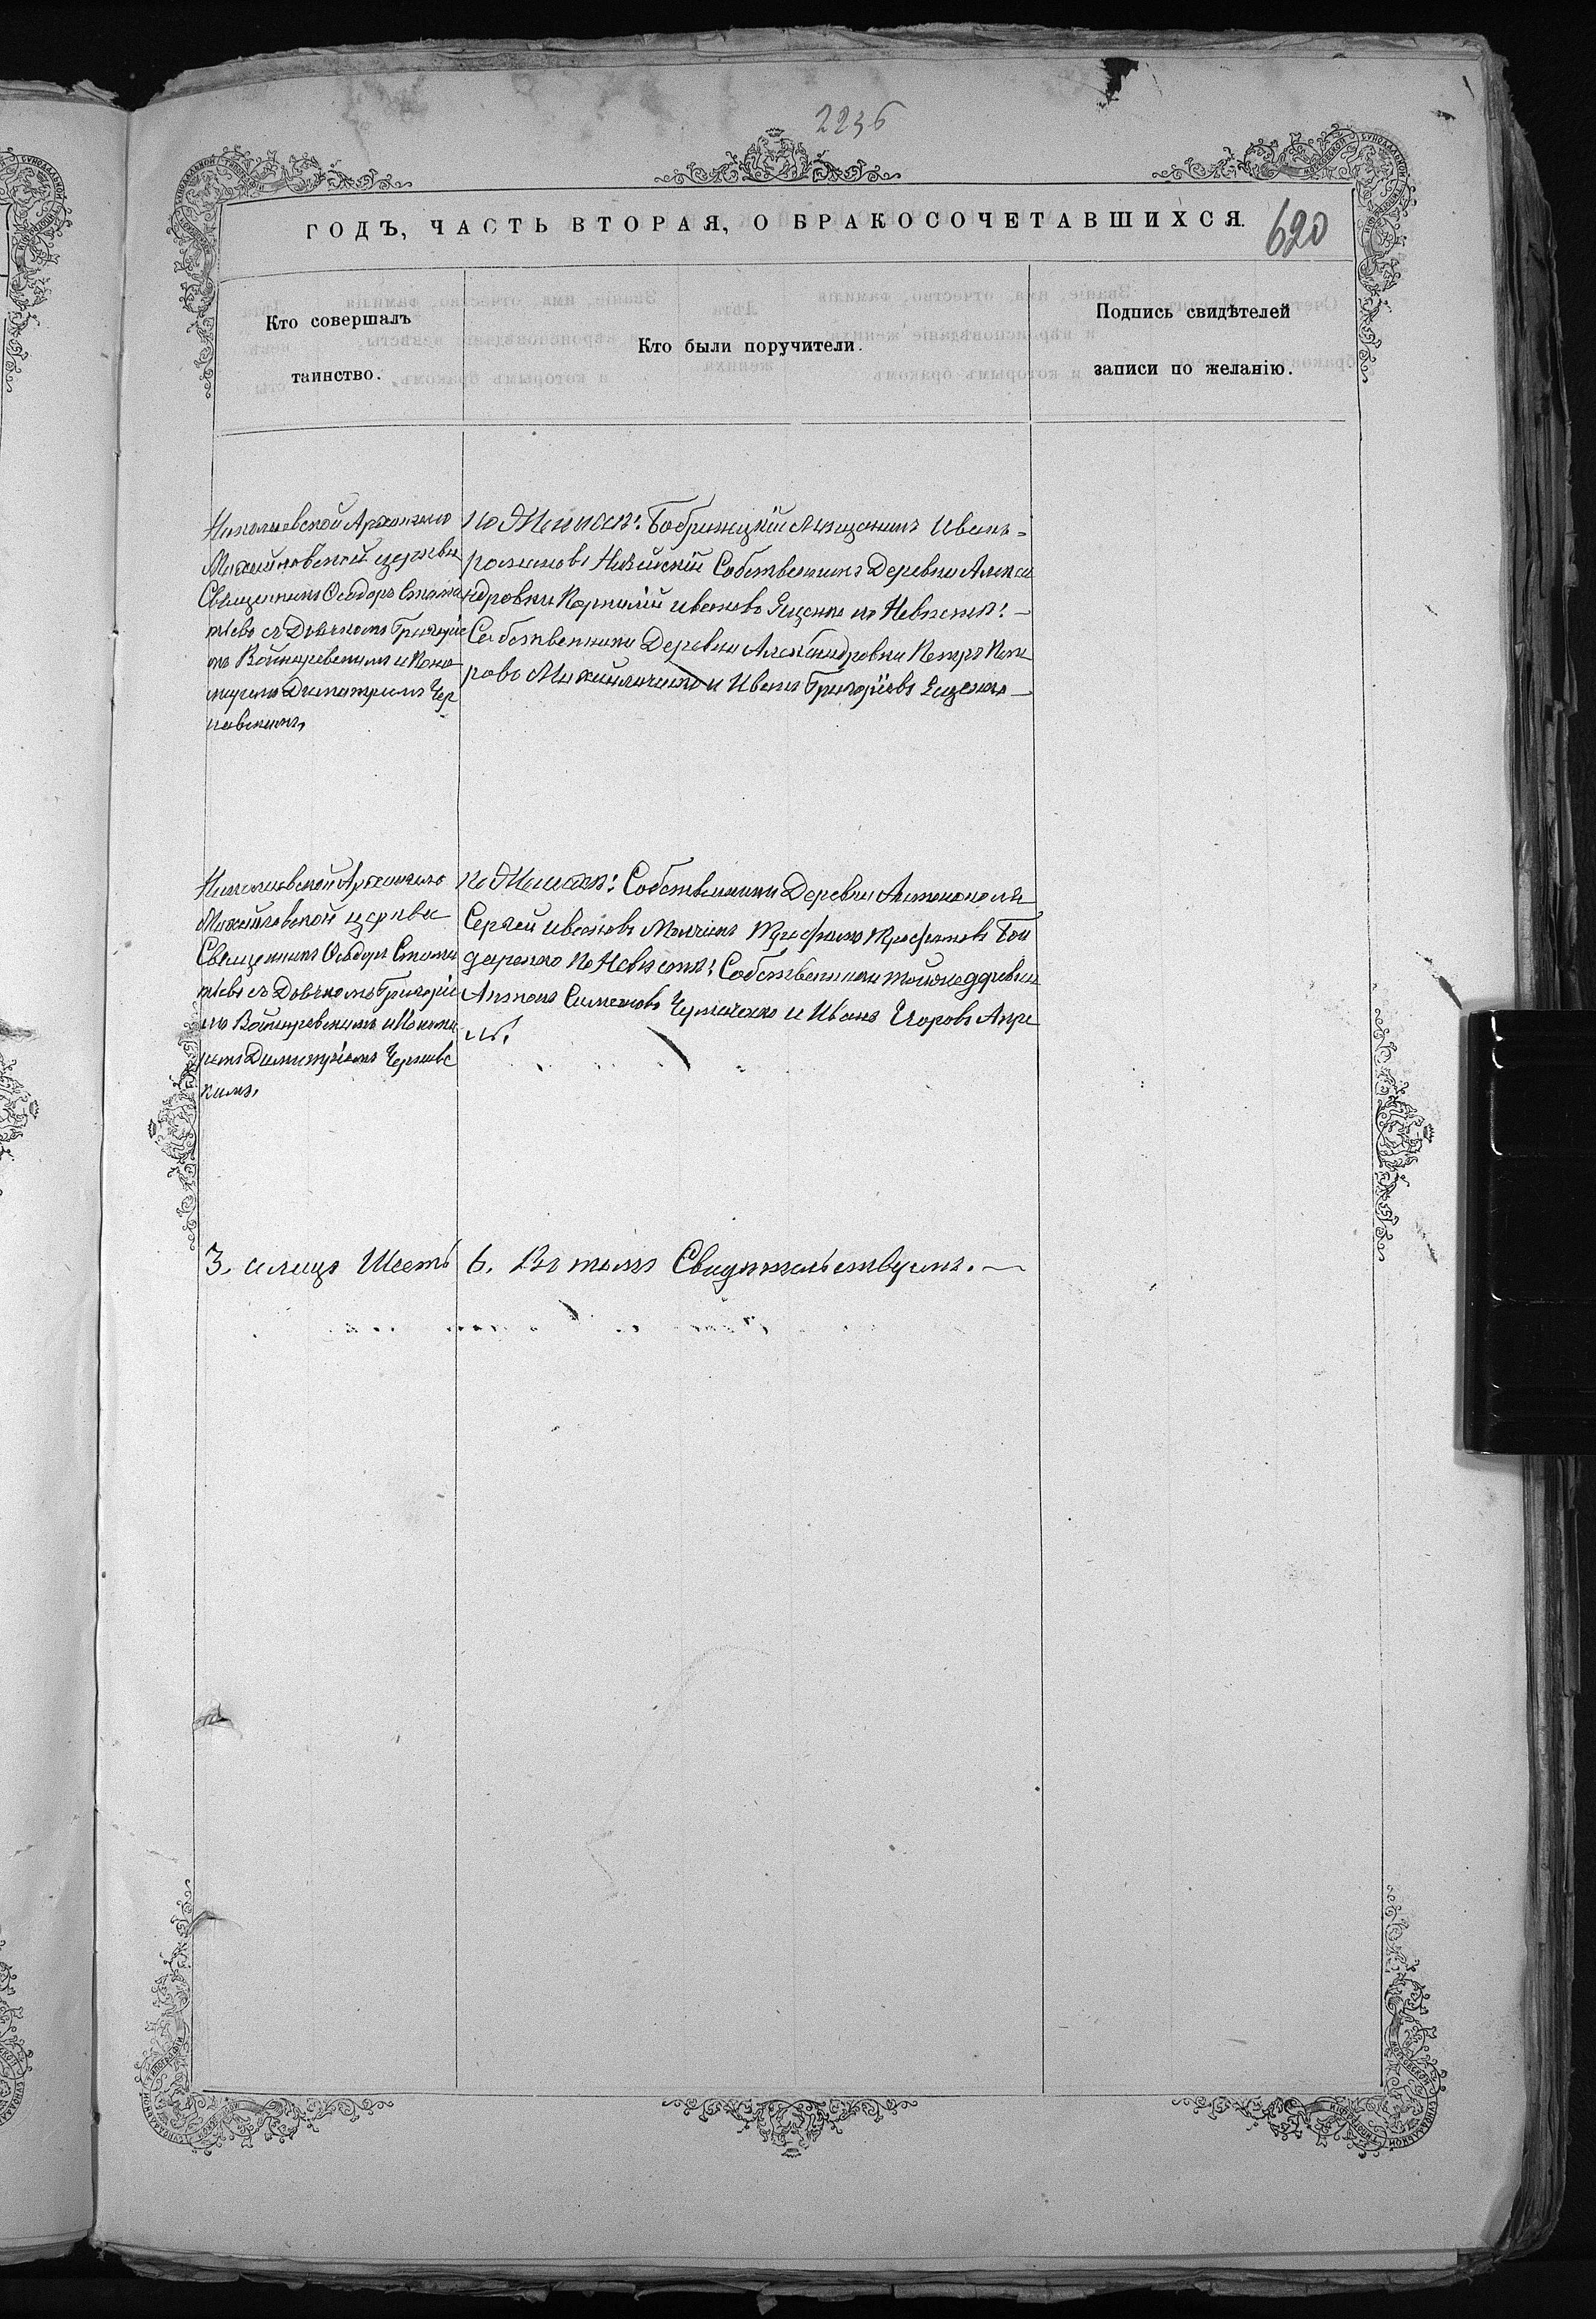 2236
ГОДЪ, ЧАСТЬ ВТОРАЯ, О БРАКОСОЧЕТАВШИХСЯ.
620
Кто совершалъ
таинство.
Кто были поручители.
Подпись свидѣтелей
записи по желанію.
Николаевской Архангело
Михайловской церкви
Священникъ Ѳеодоръ Стама
тьевъ съ Дьячкомъ Григоріе
мъ Войнаровскимъ и Поно
маремъ Димитріемъ Чер
навскимъ,
по Женихѣ: Бобринецкій Мѣщанинъ Иванъ
Собственникъ Деревни Алекса
ндровки Ивановъ Яценко по Невѣстѣ:
Собственники Деревни Александровки Петръ
Михайличенко и Иванъ Григорьевъ Яценко
Николаевской Архангело
Михайловской церкви
Священникъ Ѳеодоръ Стама
тьевъ съ Дьячкомъ Григоріе
мъ Войнаровскимъ и Понома
ремъ Димитріемъ Чернавс
кимъ,
по Женихѣ: Собственники Деревни Антонополя
Сергей Ивановъ Трофимъ Трофимовъ Бон
даренко по Невѣстѣ: Собственники тойже деревни
Антонъ Симеоновъ и Иванъ Егоровъ
3. а лицъ Шесть
6. Въ томъ Свидѣтельствуемъ.